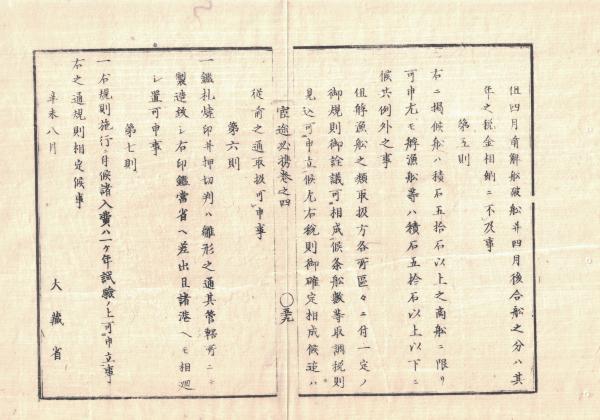 但四月前解船破船并四月後合船之分ハ其
年之税金相納ニ不及事
第五則
一右ニ掲候船ハ積石五拾石以上之商船ニ限リ
可申尤モ解漁船等ハ積石五拾石以上以下ニ
候共例外之事
但解漁船之類取扱方各所區々ニ付一定ノ
御規則御詮議可相成候条船數等取調税則
見込可申立候尤右税則御確定相成候迄ハ
宦途必携巻之四
〇五十九
從前之通取扱可申事
第六則
一鑑札燒印并押切判ハ雛形之通其管轄所ニ
製造致シ右印鑑當省ヘ差出且諸港ヘモ相廻
シ置可申事
第七則
一右規則施行ニ付候諸入費ハ一ヶ年試驗ノ上可申立事
右之通規則相定候事
辛未八月
大藏省